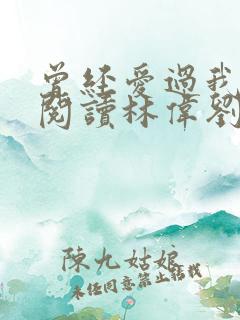 曾经爱過我
閱讀林偉劉
陳九姑娘
未任同意禁止转载